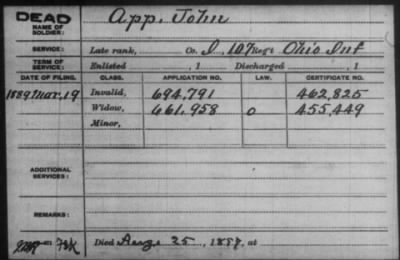 DEAD
NAME OF SOLDIER: App, John
SERVICE: Late rank, Co. I, 107 Reg't Ohio Inf
TERM OF SERVICE: Enlisted , 1 Discharged , 1
DATE OF FILING. CLASS. APPLICATION NO. LAW. CERTIFICATE NO.
1889 Mar. 19 Invalid, 694,791 462,825
Widow, 661,958 O 455,449
Minor,
ADDITIONAL SERVICES:
REMARKS:
Died Aug 25, 1889, at